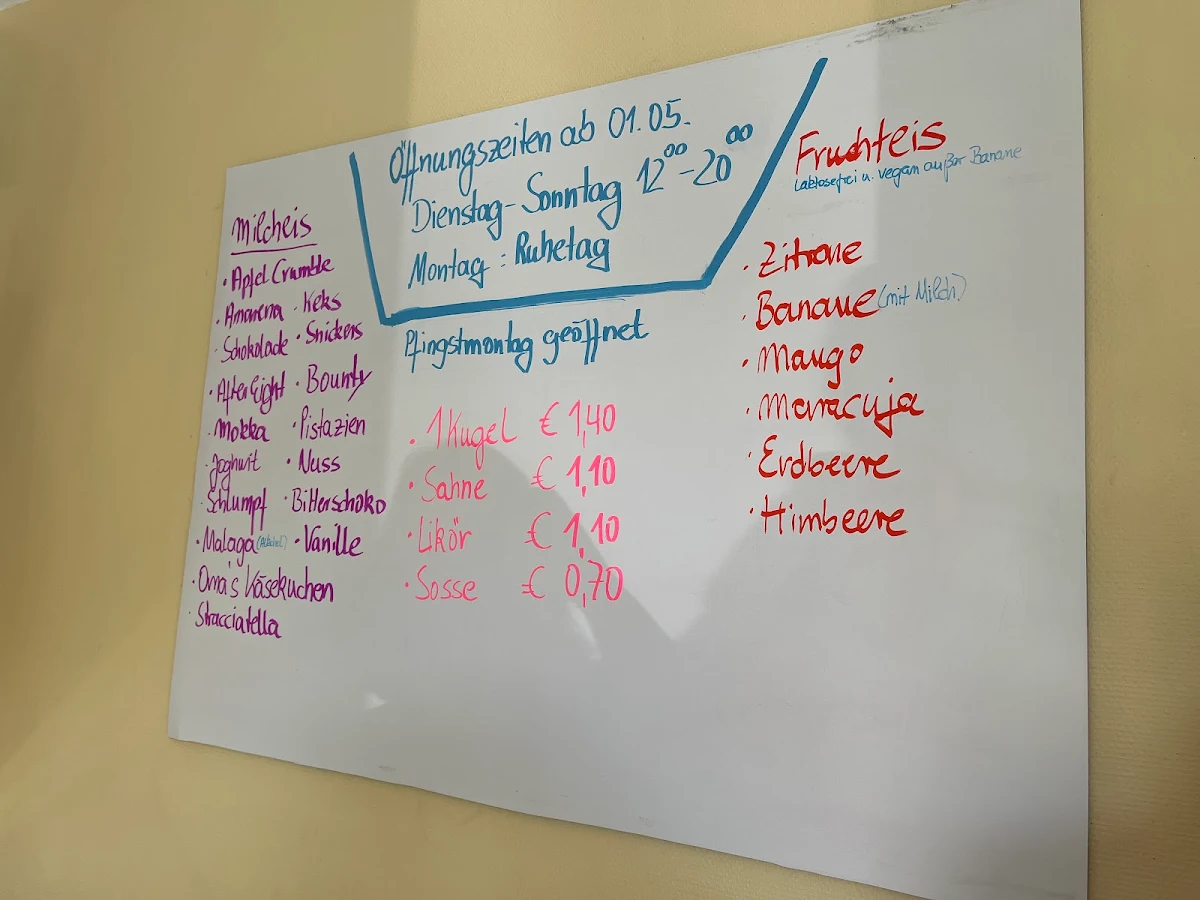 Öffnungszeiten ab 01.05.
Dienstag - Sonntag 12⁰⁰ - 20⁰⁰
Montag : Ruhetag
Pfingstmontag geöffnet
Milcheis
• Apfel Crumble
• Amarena • Keks
• Schokolade • Snickers
• After Eight • Bounty
• Mokka • Pistazien
• Joghurt • Nuss
• Schlumpf • Bitterschoko
• Malaga (Alkohol) • Vanille
• Oma's Käsekuchen
• Stracciatella
• 1 Kugel € 1,40
• Sahne € 1,10
• Likör € 1,10
• Sosse € 0,70
Fruchteis
Laktosefrei u. vegan außer Banane
• Zitrone
• Banane (mit Milch)
• Mango
• Maracuja
• Erdbeere
• Himbeere